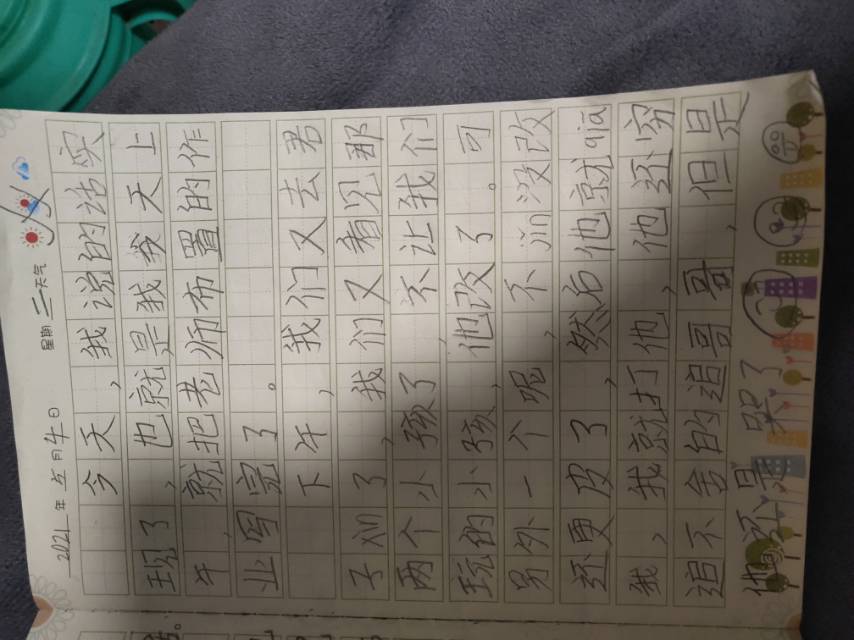 2021年5月4日 星期二 天气
今天，我说的话实
现了，也就是我我天上
午，就把老师布置的作
业写完了。
下午，我们又去君
子刈了，我们又看见那
两个小孩了，不让我们
玩的小孩，他改了。可
另外一个呢，不jǐn没改
还更皮了，然后他就qiā
我，我就打他，他还穷
追不舍的追哥哥，但是
他还是哭了